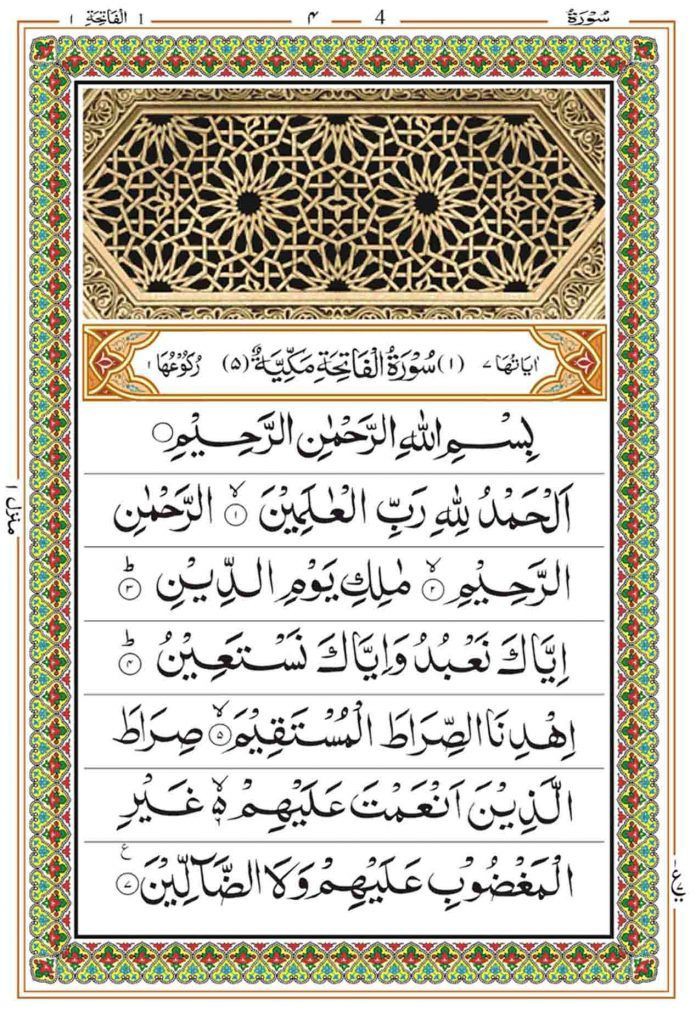 سُوْرَةُ 4 ۴ 1 اَلْفَاتِحَةِ ۱
اٰيَاتُهَا ۷ (۱) سُوْرَةُ الْفَاتِحَةِ مَكِّيَّةٌ (۵) رُكُوْعُهَا ۱
بِسْمِ اللهِ الرَّحْمٰنِ الرَّحِيْمِ ○
اَلْحَمْدُ لِلّٰهِ رَبِّ الْعٰلَمِيْنَ ۙ﴿۱﴾ الرَّحْمٰنِ
الرَّحِيْمِ ۙ﴿۲﴾ مٰلِكِ يَوْمِ الدِّيْنِ ؕ﴿۳﴾
اِيَّاكَ نَعْبُدُ وَاِيَّاكَ نَسْتَعِيْنُ ؕ﴿۴﴾
اِهْدِنَا الصِّرَاطَ الْمُسْتَقِيْمَ ۙ﴿۵﴾ صِرَاطَ
الَّذِيْنَ اَنْعَمْتَ عَلَيْهِمْ ۙ۬ۦ غَيْرِ
الْمَغْضُوْبِ عَلَيْهِمْ وَلَا الضَّآلِّيْنَ ﴿۷﴾ ع
منزل ۱